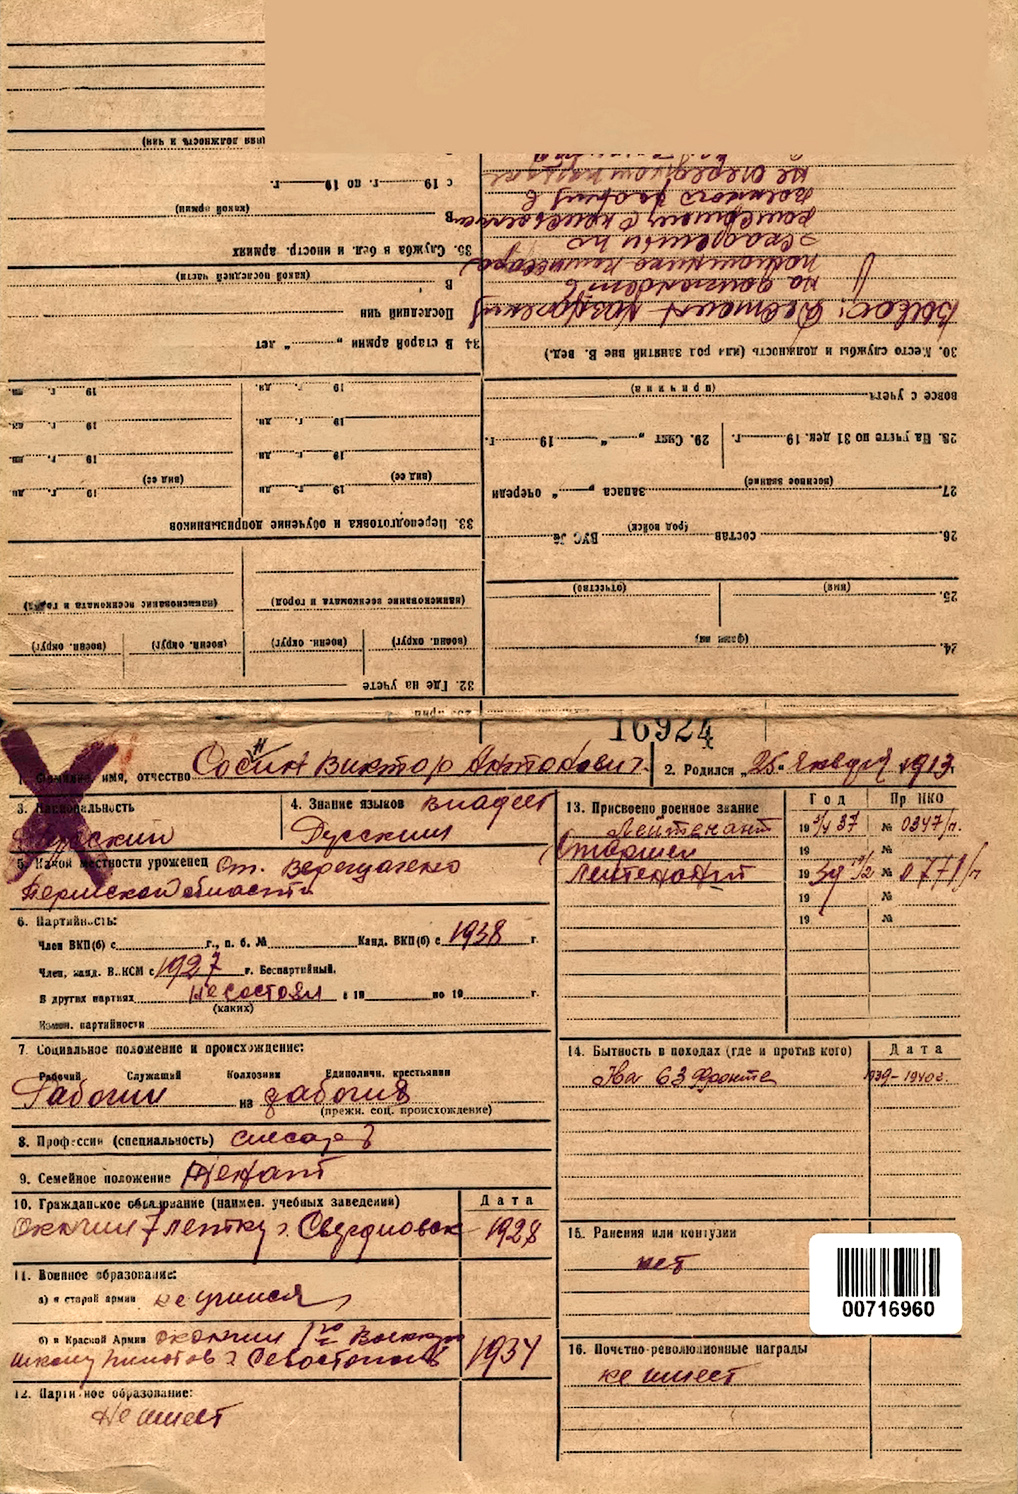 (какой армии)
с 19 г. по 19 г.
35. Служба в бел. и иностр. армиях
В
(какой последней части)
В
Последний чин
34. В старой армии „ “ лет
19 г. дн. 19 г. дн.
19 г. дн. 19 г. дн.
19 г. дн. 19 г. дн.
(вид сс) (вид сс)
19 г. дн. 19 г. дн.
33. Переподготовка и обучение допризывников
(наименование военкомата и город) (наименование военкомата и город)
(воен. округ) (воен. округ) (воен. округ) (воен. округ)
32. Где на учете
не очередном
военного
на должность
Вывод: Достоин
30. Место службы и должность (или род занятий вне В. вед.)
(причина)
вовсе с учета
28. На учете по 31 дек. 19 г. 29. Снят „ “ 19 г.
27. (военное звание) запаса „ “ очереди
26. состав (род войск) ВУС №
25. (имя) (отчество)
24. (фамилия)
16924
1. Фамилия, имя, отчество Сосин Виктор Антонович 2. Родился „25“ января 1913 г.
3. Национальность
Русский
4. Знание языков владеет
Русским
5. Какой местности уроженец ст. Верещагено
Пермской области
6. Партийность:
Член ВКП(б) с г., п. б. № Канд. ВКП(б) с 1938 г.
Член, канд. ВЛКСМ с 1927 г. Беспартийный.
В других партиях не состоял с 19 по 19 г.
(каких)
Измен. партийности
7. Социальное положение и происхождение:
Рабочий Служащий Колхозник Единоличн. крестьянин
Рабочий из рабочих
(прежн. соц. происхождение)
8. Профессия (специальность) слесарь
9. Семейное положение женат
10. Гражданское образование (наимен. учебных заведений) Дата
окончил 7 летку г. Свердловск 1928
11. Военное образование:
а) в старой армии не учился
б) в Красной Армии окончил 1ую Военную
школу пилотов г. Севостополь 1934
12. Партийное образование:
Не имеет
13. Присвоено военное звание Год Пр НКО
Лейтенант 19 37 № 0347/п.
Старший 19 №
лейтенант 19 39 № 0771/п
19 №
19 №
14. Бытность в походах (где и против кого) Дата
На 63 Фронте 1939–1940 г.
15. Ранения или контузии
нет
00716960
16. Почетно-революционные награды
не имеет